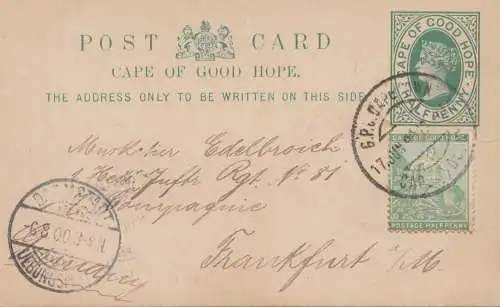 POST CARD
CAPE OF GOOD HOPE.
THE ADDRESS ONLY TO BE WRITTEN ON THIS SIDE.
CAPE OF GOOD HOPE
HALFPENNY
G.P.O. CAPE
17 JUN
POSTAGE HALFPENNY
Musketier Edelbroich
1 Hess Inftr Rgt. Nº 81
Compagnie
Frankfurt a/M.
Germany
DARMSTADT
UEBUNGSPL